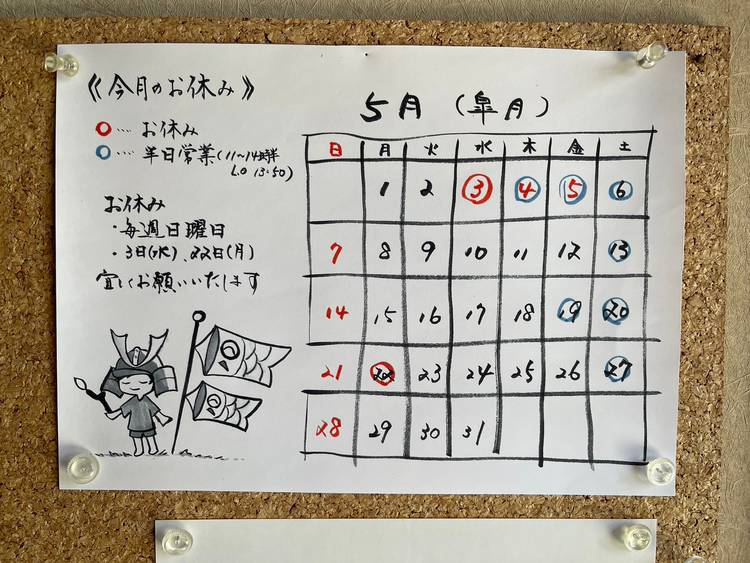 《今月のお休み》
○… お休み
○… 半日営業(11〜14時半
L.O 13:50)
お休み
・毎週日曜日
・3日(水)、22日(月)
宜しくお願いいたします
5月(皐月)
日 月 火 水 木 金 土
1 2 3 4 5 6
7 8 9 10 11 12 13
14 15 16 17 18 19 20
21 22 23 24 25 26 27
28 29 30 31